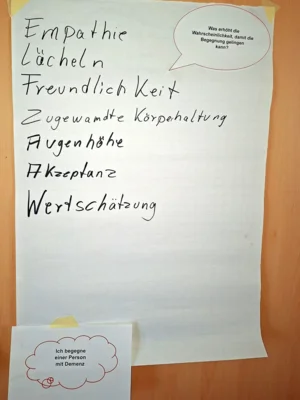 Was erhöht die
Wahrscheinlichkeit, damit die
Begegnung gelingen
kann?
Empathie
Lächeln
Freundlichkeit
Zugewandte Körpehaltung
Augenhöhe
Akzeptanz
Wertschätzung
Ich begegne
einer Person
mit Demenz